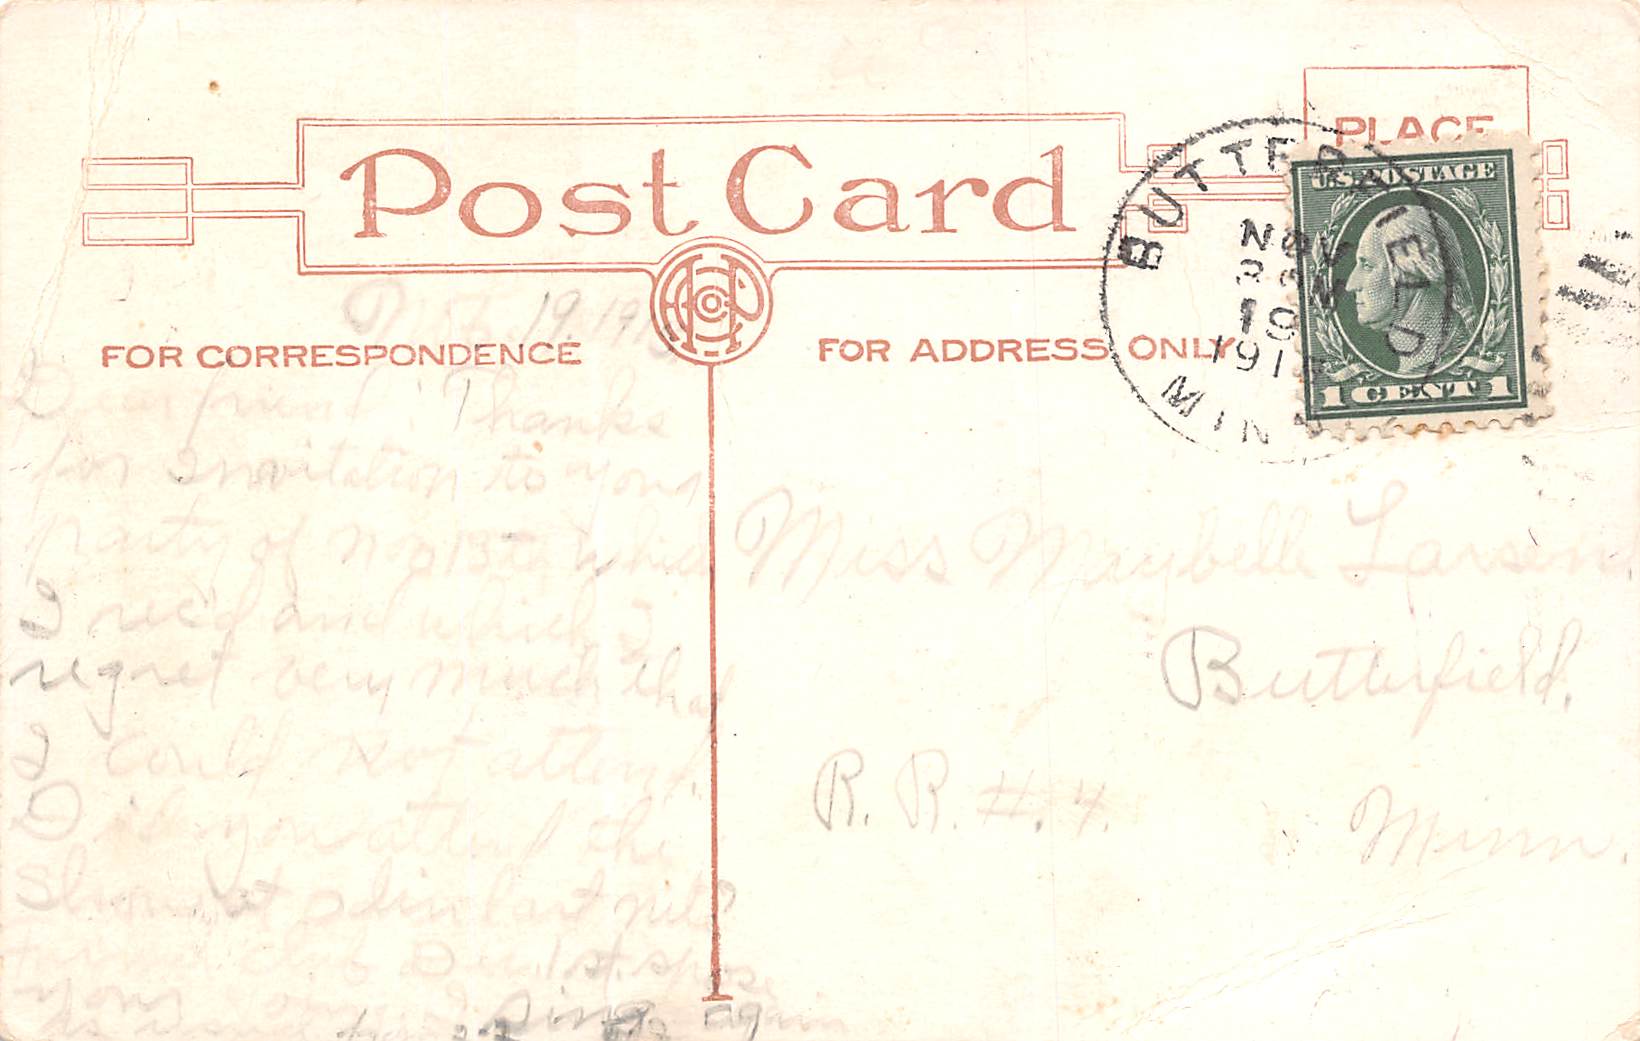 Post Card
PLACE
U.S. POSTAGE
1 CENT 1
BUTTERFIELD
NOV
10
191
MINN
FOR CORRESPONDENCE
FOR ADDRESS ONLY
19, 191
Dear friend: Thanks
for Invitation to your
party of Nov 13th which
I rec'd and which I
regret very much that
I could not attend.
Did you attend the
Show at last nite
club Dec 1st. spose
your
Sing again
Miss Maybelle Larson,
Butterfield,
R. R. #. 4.
Minn.